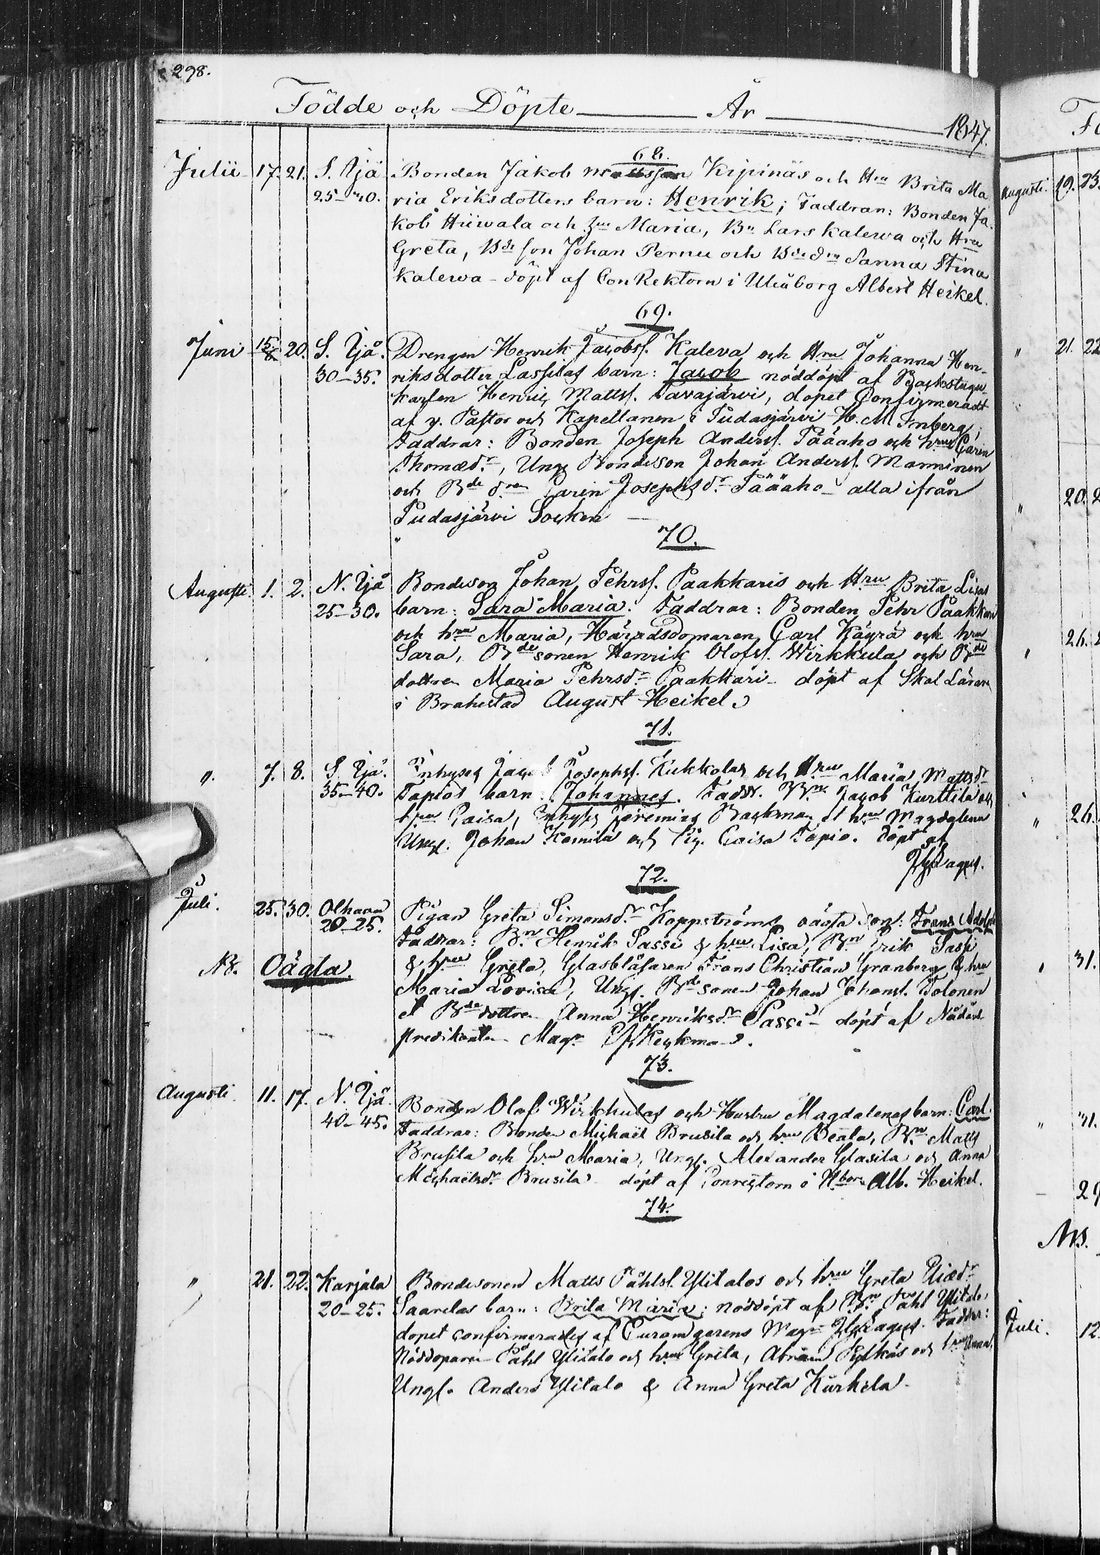 298.
Födde och Döpte År 1847.
68.
Julii 17. 21. S. Ijå Bonden Jakob Mattsson Kipinäs och Hru Brita Ma
25-40. ria Eriksdotters barn: Henrik; Faddrar: Bonden Ja-
kob Hüwala och hru Maria, Bn Lars Kalewa och Hru
Greta, Bde son Johan Pernu och Bde dn Sanna Stina
Kalewa - döpt af ConRektorn i Uleåborg Albert Heikel.
69.
Juni 15/8 20. S. Ijå. Drengen Henrik Jacobss. Kaleva och Hru Johanna Hen-
30-35. riksdotter Lassilas barn: Jacob nöddöpt af
Henric Matts. Tavajärvi, dopet Confirmeradt
af v. Pastor och Kapellanen i Pudasjärvi H. M. Imberg;
Faddrar: Bonden Joseph Anderss. Pääaho och hru Carin
Thomædr, Ungk Bondeson Johan Anderss. Manninen
och Bde dn Carin Josephsdr Pääaho - alla ifrån
Pudasjärvi Socken
70.
Augusti 1. 2. N. Ijå Bondeson Johan Pehrss. Paakkaris och Hru Brita Lisas
25-30. barn: Sara Maria. Faddrar: Bonden Pehr Paakkari
och hru Maria, Häradsdomaren Carl Käyrä och hru
Sara, Bdesonen Henrik Olofss. Wirkkula och Bde
dottren Maria Pehrsdr Paakkari - döpt af Skol Läraren
i Brahestad August Heikel.
71.
". 7. 8. S. Ijå. Inhyses Jacob Josephss. Kukkolas och Hru Maria Mattsdr
35-40. Tapios barn: Johannes. Faddr. Bn Jacob Kurttila och
hru Caisa, Inhyses Jeremias Backman et hru Magdalena
Ungk. Johan Komila och Pig. Caisa Tapio. döpt af
72.
Juli. 25. 30. Olhava Pigan Greta Simonsdr Koppströms oägta son: Frans Adolph
20-25. Faddrar: Bn Henrik Sassi & hru Lisa, Bn Erik Sassi
NB. Oägta. & hru Greta, Glasblåsaren Frans Christian Granberg & hru
Maria Lovisa, Ungk. Bdesonen Johan Johanss. Tolonen
et Bdedottren Anna Henriksdr Sassi - döpt af Nådårs
predikanten Magr
73.
Augusti 11. 17. N. Ijå Bonden Olof Wirkkulas och Hustru Magdalenas barn: Carl.
40-45. Faddrar: Bonden Michaël Brusila och hru Beata, Bn Matts
Brusila och hru Maria, Ungk. Alexander Glasila och Anna
Michaëlsdr Brusila - döpt af Conrectorn i Uborg Alb. Heikel.
74.
" 21. 22. Karjala Bondesonen Matts Påhlss. Ylitalos och hru Greta
20-25. Saarelas barn: Brita Maria; nöddöpt af Bn Påhl Ylitalo,
dopet confirmerades af Magr Faddr:
Nöddöparen Påhl Ylitalo och hru Greta, Abram och hru Anna,
Ungk. Anders Ylitalo & Anna Greta Kurkela.
Augusti. 19. 23.
" 21. 22
" 20.
" 26.
" 26.
" 31.
" 31.
NB.
Juli. 12.